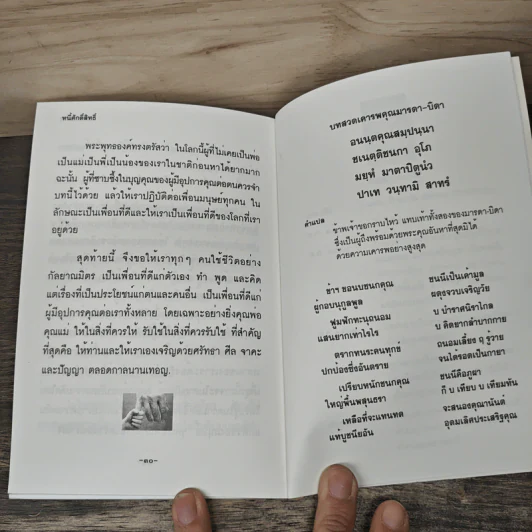 หนี้ศักดิ์สิทธิ์
พระพุทธองค์ทรงตรัสว่า ในโลกนี้ผู้ที่ไม่เคยเป็นพ่อ
เป็นแม่เป็นพี่เป็นน้องของเราในชาติก่อนหาได้ยากมาก
ฉะนั้น ผู้ที่ซาบซึ้งในบุญคุณของผู้มีอุปการคุณต่อตนควรจำ
บทนี้ไว้ด้วย แล้วให้เราปฏิบัติต่อเพื่อนมนุษย์ทุกคน ใน
ลักษณะเป็นเพื่อนที่ดีและให้เราเป็นเพื่อนที่ดีของโลกที่เรา
อยู่ด้วย
สุดท้ายนี้ จึงขอให้เราทุกๆ คนใช้ชีวิตอย่าง
กัลยาณมิตร เป็นเพื่อนที่ดีแก่ตัวเอง ทำ พูด และคิด
แต่เรื่องที่เป็นประโยชน์แก่ตนและคนอื่น เป็นเพื่อนที่ดีแก่
ผู้มีอุปการคุณต่อเราทั้งหลาย โดยเฉพาะอย่างยิ่งคุณพ่อ
คุณแม่ ให้ในสิ่งที่ควรให้ รับใช้ในสิ่งที่ควรรับใช้ ที่สำคัญ
ที่สุดคือ ให้ท่านและให้เราเองเจริญด้วยศรัทธา ศีล จาคะ
และปัญญา ตลอดกาลนานเทอญ.
~๓๐~
บทสวดเคารพคุณมารดา-บิดา
อนนฺตคุณสมฺปนฺนา
ชเนตฺติชนกา อุโภ
มยฺหํ มาตาปิตูนํว
ปาเท วนฺทามิ สาทรํ
คำแปล ข้าพเจ้าขอกราบไหว้ แทบเท้าทั้งสองของมารดา-บิดา
ซึ่งเป็นผู้ถึงพร้อมด้วยพระคุณอันหาที่สุดมิได้
ด้วยความเคารพอย่างสูงสุด
ข้าฯ ขอนบชนกคุณ ชนนีเป็นเค้ามูล
ผู้กอบนุกูลพูน ผดุงจวบเจริญวัย
ฟูมฟักทะนุถนอม บ บำราศนิราไกล
แสนยากเท่าไรไร บ คิดยากลำบากกาย
ตรากทนระคนทุกข์ ถนอมเลี้ยง ฤ รู้วาย
ปกป้องซึ่งอันตราย จนได้รอดเป็นกายา
เปรียบหนักชนกคุณ ชนนีคือภูผา
ใหญ่พื้นพสุนธรา ก็ บ เทียบ บ เทียมทัน
เหลือที่จะแทนทด จะสนองคุณานันต์
แท้บูชไนยอัน อุดมเลิศประเสริฐคุณ